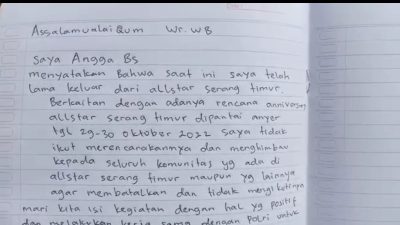 Assalamualaiqum Wr. WB
Saya Angga Bs
menyatakan Bahwa saat ini saya telah
lama keluar dari allstar serang timur.
Berkaitan dengan adanya rencana anniversary
allstar serang timur dipantai anyer
tgl 29-30 oktober 2022 saya tidak
ikut merencanakannya dan menghimbau
kepada seluruh komunitas yg ada di
allstar serang timur maupun yg lainnya
agar membatalkan dan tidak mengikutinya
mari kita isi kegiatan dengan hal yg positif
dan melakukan kerja sama dengan Polri untuk